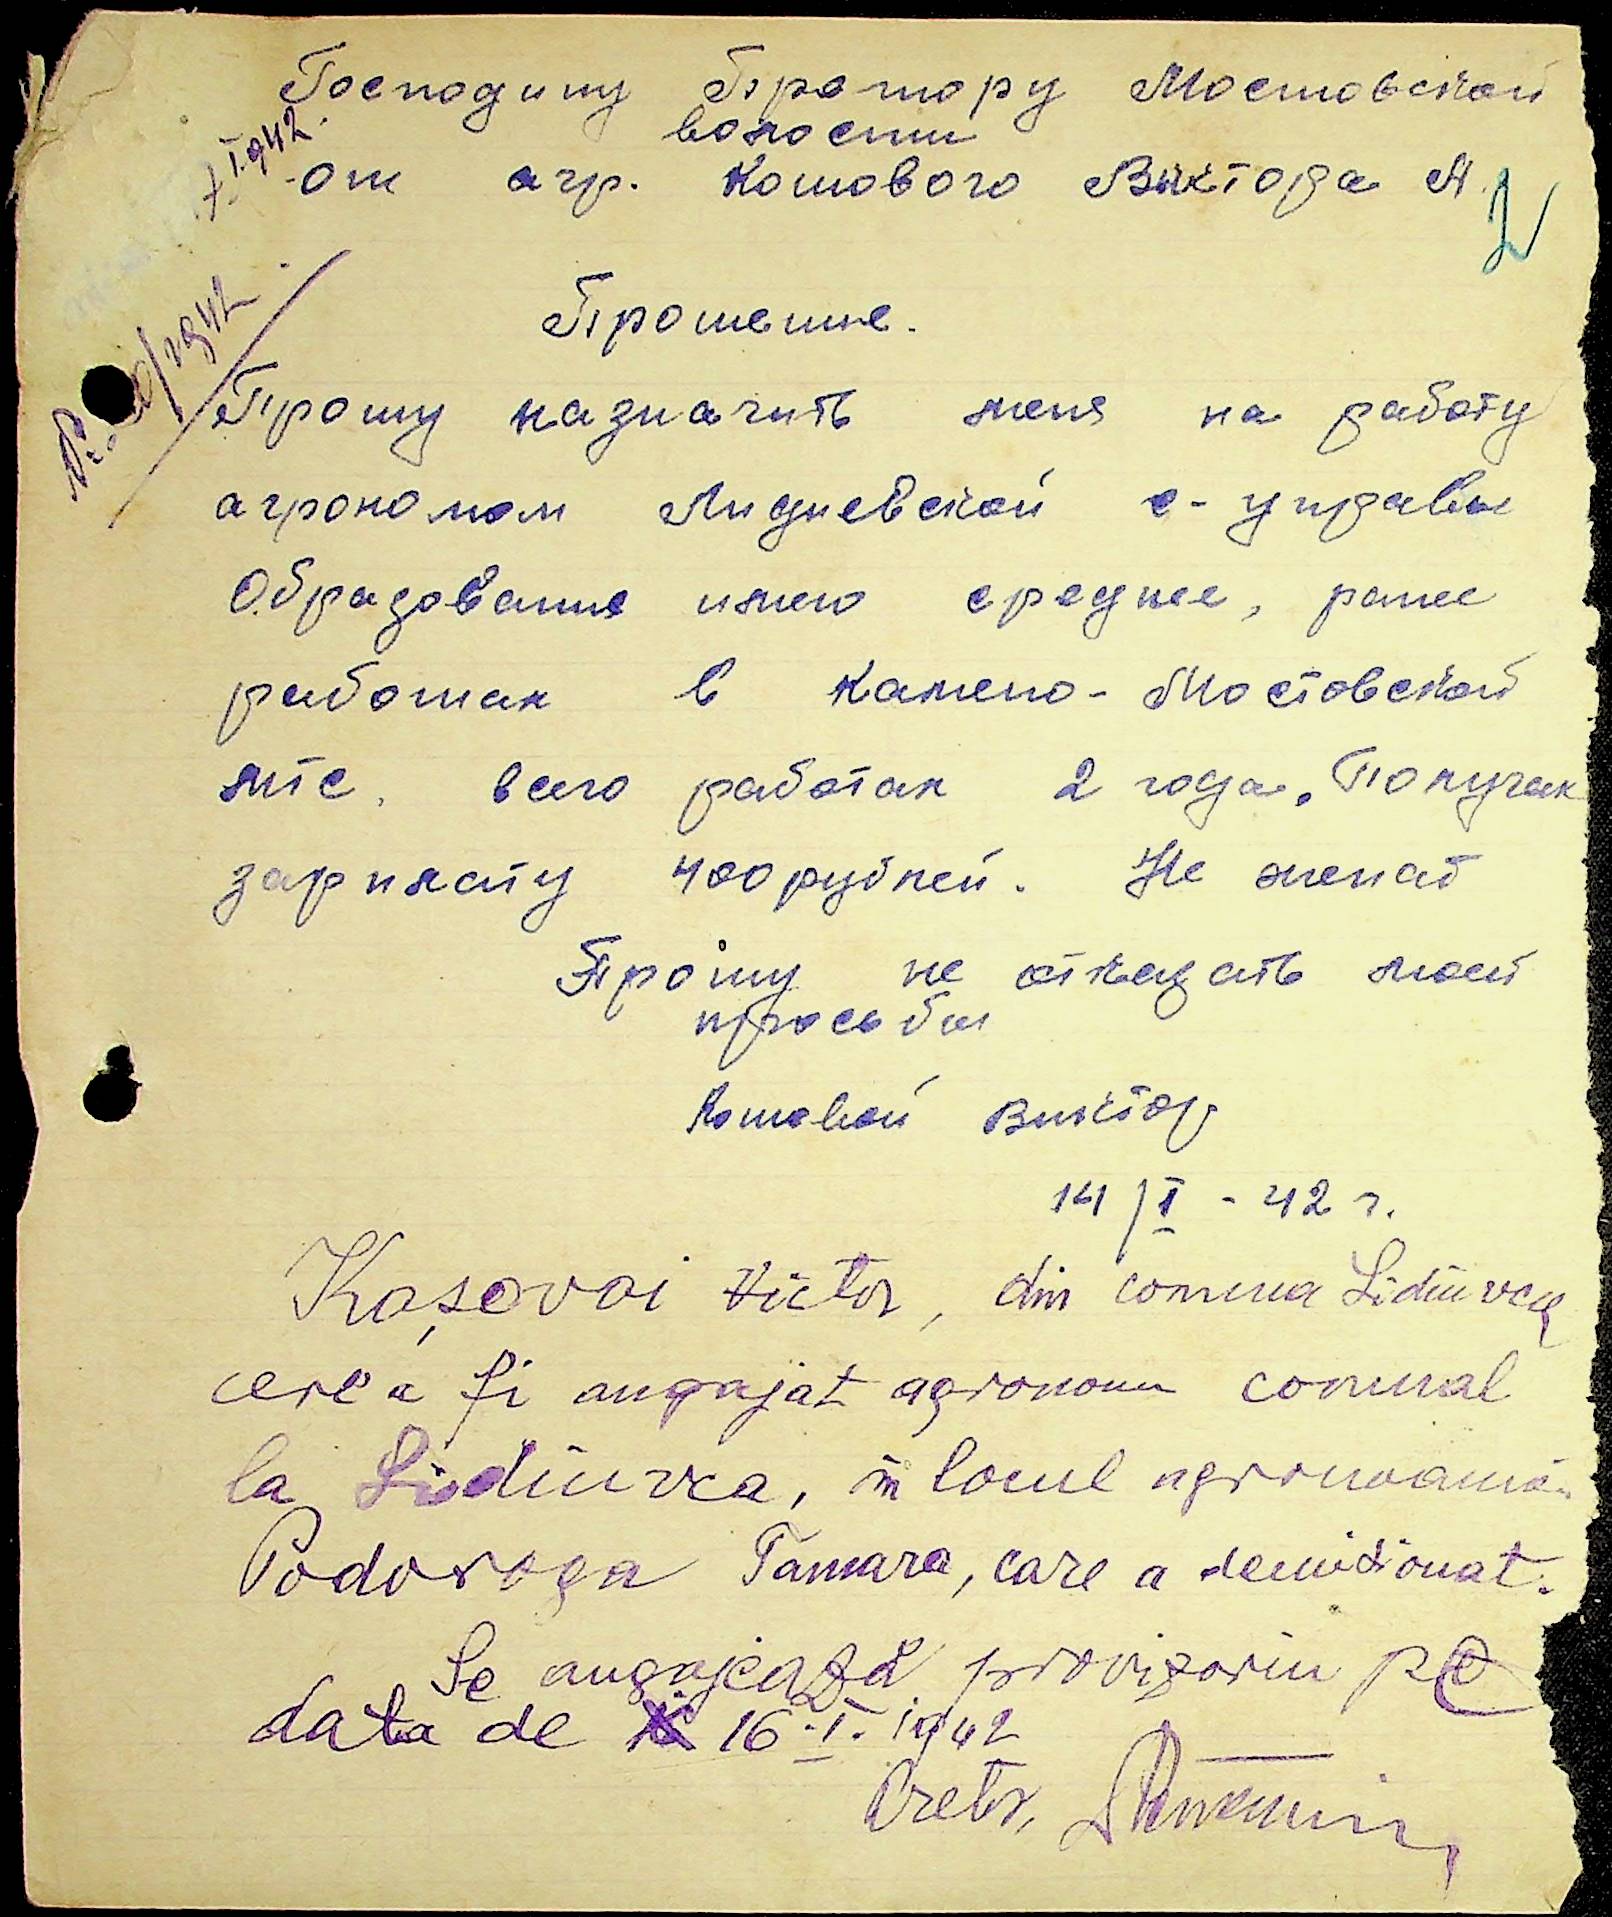 Господину Претору Мостовской
волости
от агр. Кошового Виктора А.
I.942.
/1942
Прошение.
Прошу назначить меня на работу
агрономом Лидиевской с-управы
Образование имею среднее, ранее
работал в Камено-Мостовской
мтс, всего работал 2 года. Получал
зарплату 400 рублей. Не женат
Прошу не отказать моей
просьбы
Кошовой Виктор
14/I - 42 г.
Kaşovoi Victor, din comuna Lidiivca
cere a fi angajat agronom comunal
la Lidiivca, în locul agronoamei
Podoroga Tamara, care a demisionat.
Se angajează provizoriu pe
data de 16.I.1942
Pretor,